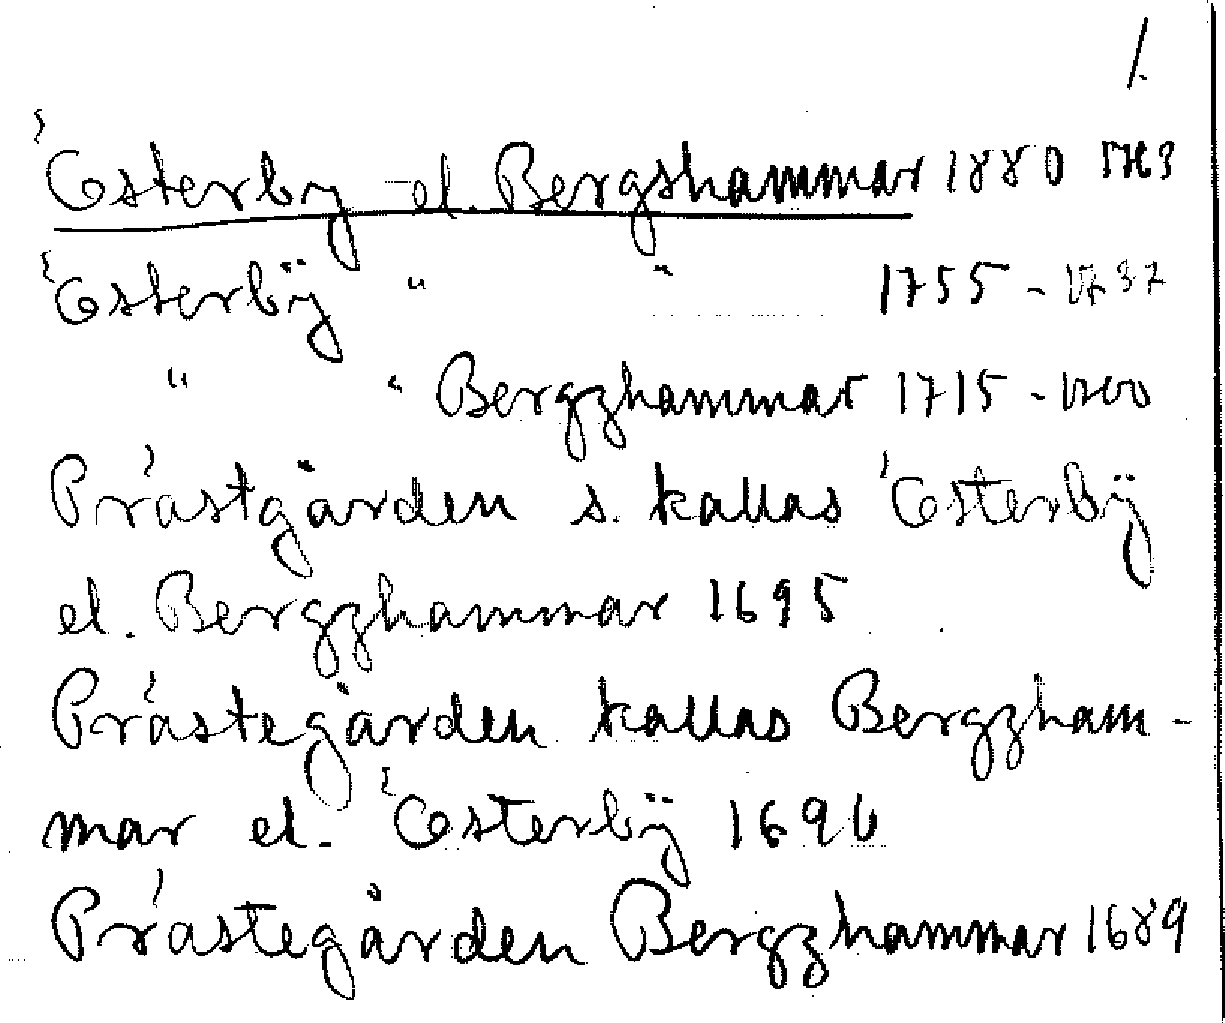 1.
Österby el. Bergshammar 1880 1763
Österbÿ " " 1755 - 1737
" " Bergzhammar 1715 - 1700
Prästgården s. kallas Österbÿ
el. Bergzhammar 1695
Prästegården kallas Bergzham-
mar el. Österbÿ 1696
Prästegården Bergzhammar 1689